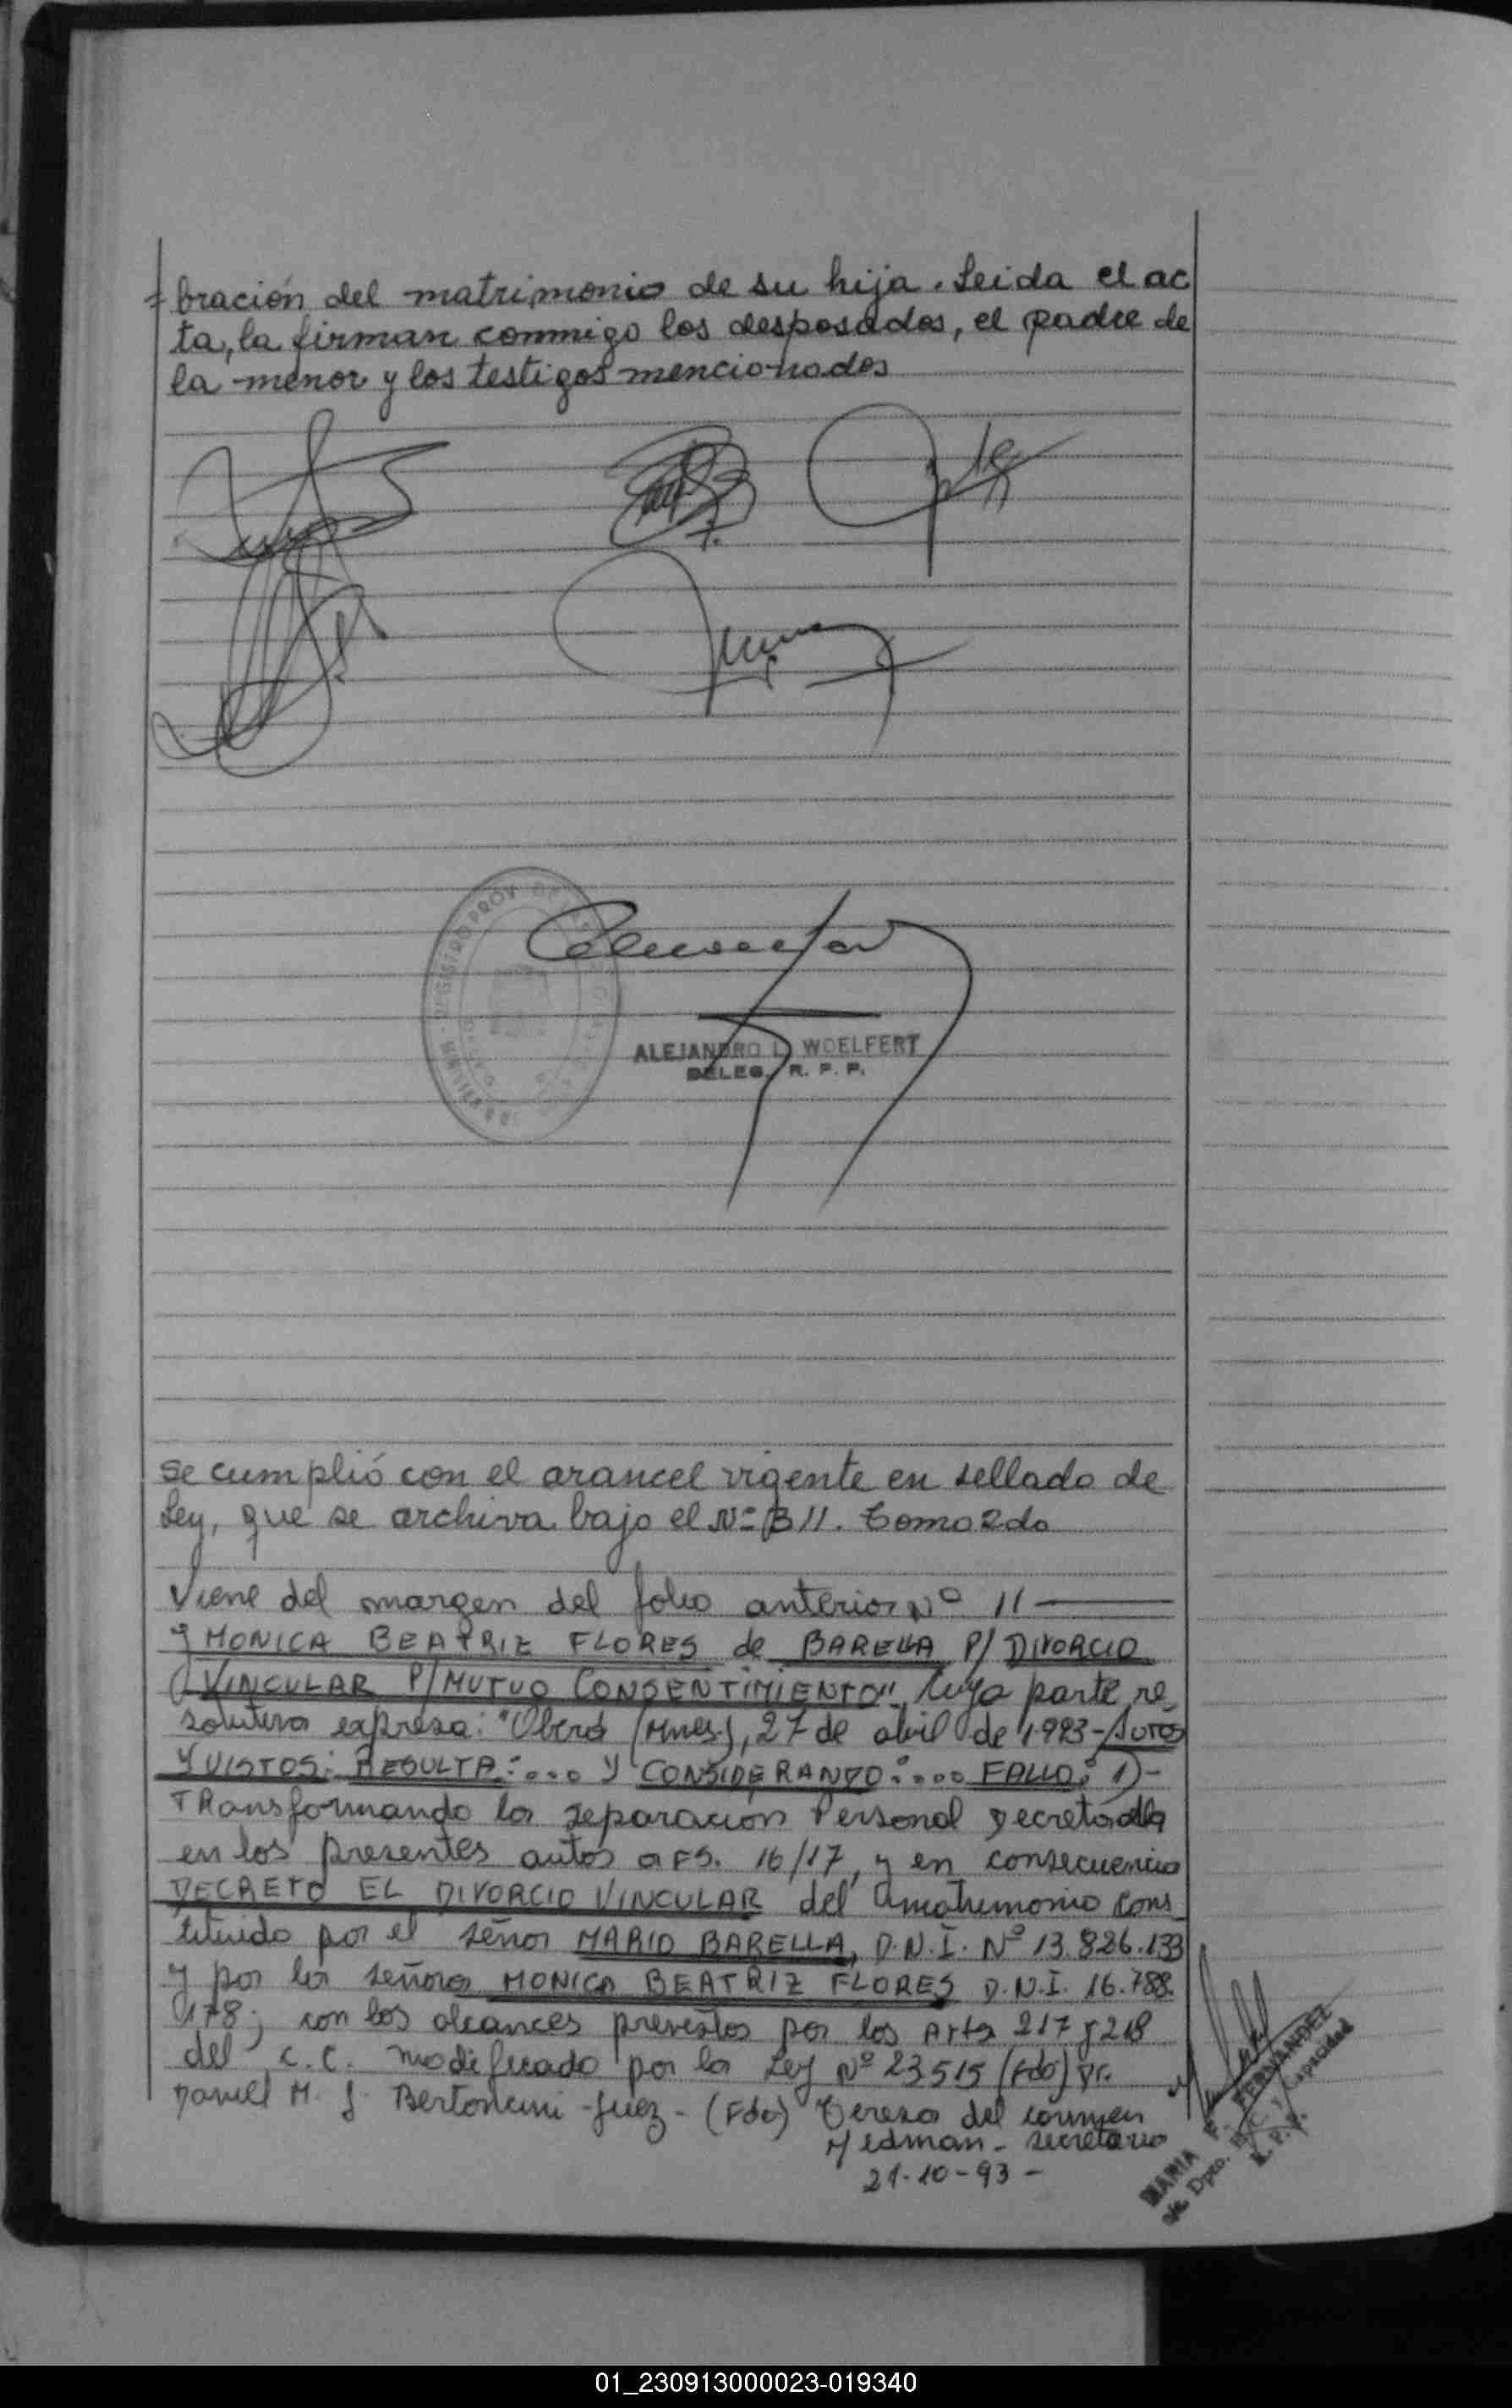 bración del matrimonio de su hija. Leida el ac
ta, la firman conmigo los desposados, el padre de
la menor y los testigos mencionados
REGISTRO PROV. DE
ALEJANDRO L. WOELFERT
DELEG. R. P. P.
se cumplió con el arancel vigente en sellado de
Ley, que se archiva bajo el Nº B 11. Tomo 2do
Viene del margen del folio anterior Nº 11
y MONICA BEATRIZ FLORES de BARELLA P/ DIVORCIO
VINCULAR P/MUTUO CONSENTIMIENTO" cuya parte re
solutiva expresa: "Oberá (Mnes), 27 de abril de 1.993-AUTOS
Y VISTOS: RESULTA:... Y CONSIDERANDO:... FALLO: 1)-
TRansformando la separacion Personal Decretada
en los presentes autos a FS. 16/17, y en consecuencia
DECRETO EL DIVORCIO VINCULAR del matrimonio cons
tituido por el señor MARIO BARELLA, D.N.I. Nº 13.826.133
y por la señora MONICA BEATRIZ FLORES D.N.I. 16.788.
178; con los alcances previstos por los Arts 217 y 218
del C.C. modificado por la Ley Nº 23515 (Fdo) Dr.
Daniel M. J. Bertoncini -Juez- (Fdo) Teresa del carmen
Hedman - secretaria
21-10-93 -
MARIA F. FERNANDEZ
Dpto. E. C. y Capacidad
R. P. P.
01_230913000023-019340